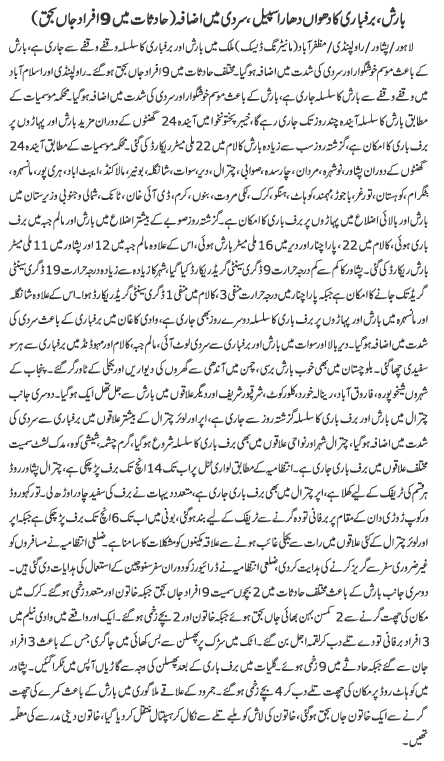 بارش، برفباری کا دھواں دھار اسپیل، سردی میں اضافہ (حادثات میں 9 افراد جاں بحق)
لاہور/پشاور/راولپنڈی/مظفرآباد (مانیٹرنگ ڈیسک) ملک میں بارش اور برفباری کا سلسلہ وقفے وقفے سے جاری ہے، بارش
کے باعث موسم خوشگوار اور سردی کی شدت میں اضافہ ہو گیا۔ مختلف حادثات میں 9 افراد جاں بحق ہو گئے۔ راولپنڈی اور اسلام آباد
میں وقفے وقفے سے بارش کا سلسلہ جاری ہے، بارش کے باعث موسم خوشگوار اور سردی کی شدت میں اضافہ ہو گیا ہے۔ محکمہ موسمیات کے
مطابق بارش کا سلسلہ آیندہ چند روز تک جاری رہے گا، خیبر پختونخوا میں آیندہ 24 گھنٹوں کے دوران مزید بارش اور پہاڑوں پر
برف باری کا امکان ہے، گزشتہ روز سب سے زیادہ بارش کالام میں 22 ملی میٹر ریکارڈ کی گئی۔ محکمہ موسمیات کے مطابق آیندہ 24
گھنٹوں کے دوران پشاور، نوشہرہ، مردان، چارسدہ، صوابی، چترال، دیر، سوات، شانگلہ، بونیر، مالاکنڈ، ایبٹ آباد، ہری پور، مانسہرہ،
بٹگرام، کوہستان، تورغر، باجوڑ، مہمند، کوہاٹ، ہنگو، کرک، لکی مروت، بنوں، کرم، ڈی آئی خان، ٹانک، شمالی و جنوبی وزیرستان میں
بارش اور بالائی اضلاع میں پہاڑوں پر برف باری کا امکان ہے۔ گزشتہ روز صوبے کے بیشتر اضلاع میں بارش اور مالم جبہ میں برف
باری ہوئی، کالام میں 22، پارا چنار اور دیر میں 16 ملی میٹر بارش ہوئی، اس کے علاوہ مالم جبہ میں 12 اور پشاور میں 11 ملی میٹر
بارش ریکارڈ کی گئی۔ پشاور کا کم سے کم درجہ حرارت 9 ڈگری سینٹی گریڈ ریکارڈ کیا گیا، شہر کا زیادہ سے زیادہ درجہ حرارت 19 ڈگری سینٹی
گریڈ تک جانے کا امکان ہے جبکہ پارا چنار میں درجہ حرارت منفی 3، کالام میں منفی 1 ڈگری سینٹی گریڈ ریکارڈ ہوا۔ اس کے علاوہ شانگلہ
اور مانسہرہ میں بارش اور پہاڑوں پر برف باری کا سلسلہ دوسرے روز بھی جاری ہے، وادی کاغان میں برفباری کے باعث سردی کی
شدت میں اضافہ ہو گیا۔ دیر بالا اور سوات میں بارش اور برف باری سے سردی لوٹ آئی، مالم جبہ، کالام اور مہوڈنڈ میں برفباری سے ہر سو
سفیدی چھا گئی۔ بلوچستان میں بھی خوب بارش برسی، چمن میں آندھی سے گھروں کی دیواریں اور بجلی کے ٹاور گر گئے۔ پنجاب کے
شہروں شیخوپورہ، فاروق آباد، رینالہ خورد، کلورکوٹ، شرقپور شریف اور دیگر علاقوں میں بارش سے جل تھل ایک ہو گیا۔ دوسری جانب
چترال میں بارش اور برف باری کا سلسلہ گزشتہ روز سے جاری ہے، اپر اور لوئر چترال کے بیشتر علاقوں میں برفباری سے سردی کی
شدت میں اضافہ ہو گیا، چترال شہر اور نواحی علاقوں میں بھی برف باری کا سلسلہ شروع ہو گیا، گرم چشمہ، شیشی کوہ، مدک لشٹ سمیت
مختلف علاقوں میں برف باری جاری ہے۔ انتظامیہ کے مطابق لواری ٹنل پر اب تک 14 انچ تک برف پڑ چکی ہے، چترال پشاور روڈ
ہر قسم کی ٹریفک کے لیے کھلا ہے، اپر چترال میں بھی برف باری جاری ہے، متعدد دیہات نے برف کی سفید چادر اوڑھ لی۔ تورکہو روڈ
ورکوپ روڑی دان کے مقام پر برفانی تودہ گرنے سے ٹریفک کے لیے بند ہو گئی، بونی میں اب تک 6 انچ تک برف پڑ چکی ہے جبکہ اپر
اور لوئر چترال کے کئی علاقوں میں رات سے بجلی غائب ہونے سے علاقہ مکینوں کو مشکلات کا سامنا ہے۔ ضلعی انتظامیہ نے مسافروں کو
غیر ضروری سفر سے گریز کرنے کی ہدایت کردی، ضلعی انتظامیہ نے ڈرائیورز کو دوران سفر سنو چین کے استعمال کی ہدایات دی گئی ہیں۔
دوسری جانب بارش کے باعث مختلف حادثات میں 2 بچوں سمیت 9 افراد جاں بحق ہو گئے جبکہ خاتون اور متعدد زخمی ہو گئے۔ کرک میں
مکان کی چھت گرنے سے 2 کمسن بہن بھائی جاں بحق ہو گئے جبکہ خاتون اور 2 بچے زخمی ہو گئے۔ ایک اور واقعے میں وادی نیلم میں
3 افراد برفانی تودے تلے دب کر لقمہ اجل بن گئے۔ اٹک میں سڑک پر پھسلن سے بس کھائی میں جاگری جس کے باعث 3 افراد
جاں بحق ہو گئے جبکہ حادثے میں 9 زخمی ہو گئے۔ گلیات میں برف باری کے بعد پھسلن کی وجہ سے گاڑیاں آپس میں ٹکرا گئیں۔ پشاور
میں کوہاٹ روڈ پر مکان کی چھت تلے دب کر 4 بچے زخمی ہو گئے۔ جمرود کے علاقے ملاگوری میں بارش کے باعث کمرے کی چھت
گرنے سے ایک خاتون جاں بحق ہو گئی، خاتون کی لاش کو ملبے تلے سے نکال کر ہسپتال منتقل کر دیا گیا، خاتون دینی مدرسے کی معلّمہ
تھیں۔